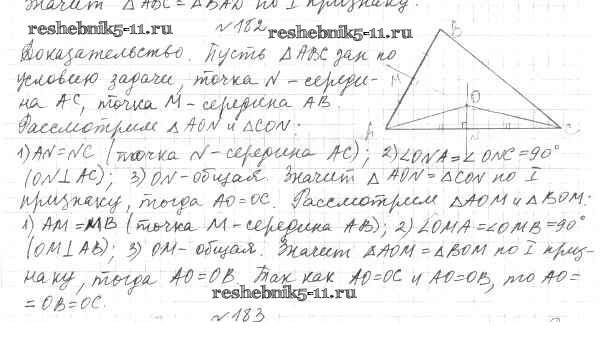 значит △ABC = △BAD по I признаку.
reshebnik5-11.ru
№182
reshebnik5-11.ru
Доказательство. Пусть △ABC дан по
условию задачи, точка N - середи-
на AC, точка M - середина AB.
Рассмотрим △AON и △CON:
B
M
O
A
N
C
1) AN=NC (точка N - середина AC); 2) ∠ONA=∠ONC=90°
(ON⊥AC); 3) ON - общая. Значит △AON=△CON по I
признаку, тогда AO=OC. Рассмотрим △AOM и △BOM:
1) AM=MB (точка M - середина AB); 2) ∠OMA=∠OMB=90°
(OM⊥AB); 3) OM - общая. Значит △AOM=△BOM по I приз-
наку, тогда AO=OB. Так как AO=OC и AO=OB, то AO=
=OB=OC.
reshebnik5-11.ru
№183